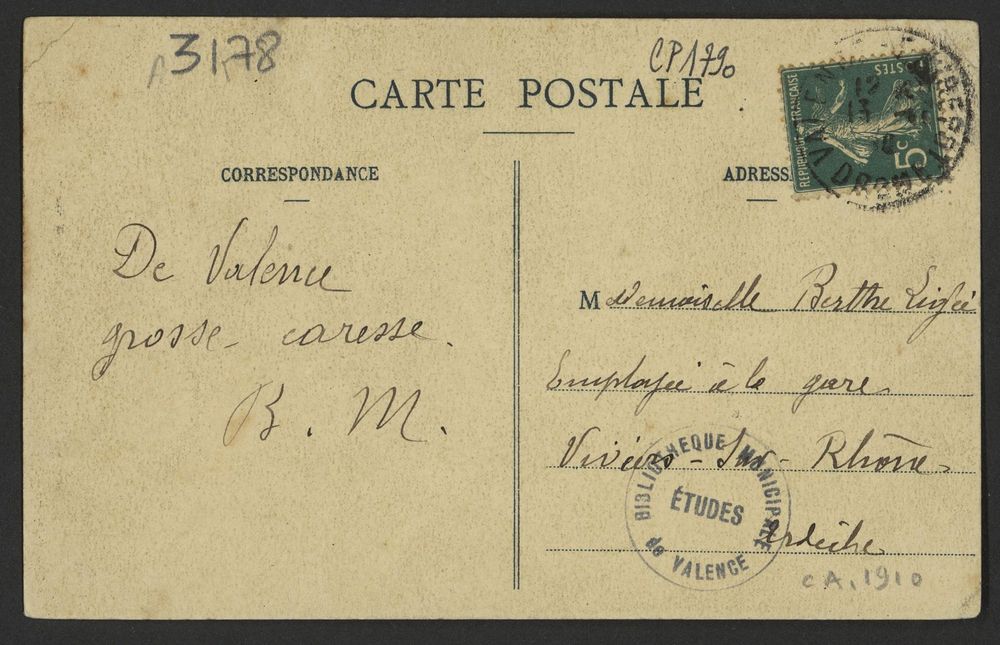 3178
CP1790
CARTE POSTALE
REPUBLIQUE FRANÇAISE
POSTES
5c
VALENCE
DROME
12
13
CORRESPONDANCE
ADRESS
De Valence
grosse caresse.
B. M.
Mademoiselle Berthe
Employée à la gare
Viviers-Sur-Rhône
Ardèche
BIBLIOTHEQUE MUNICIPALE
ÉTUDES
de VALENCE
CA. 1910